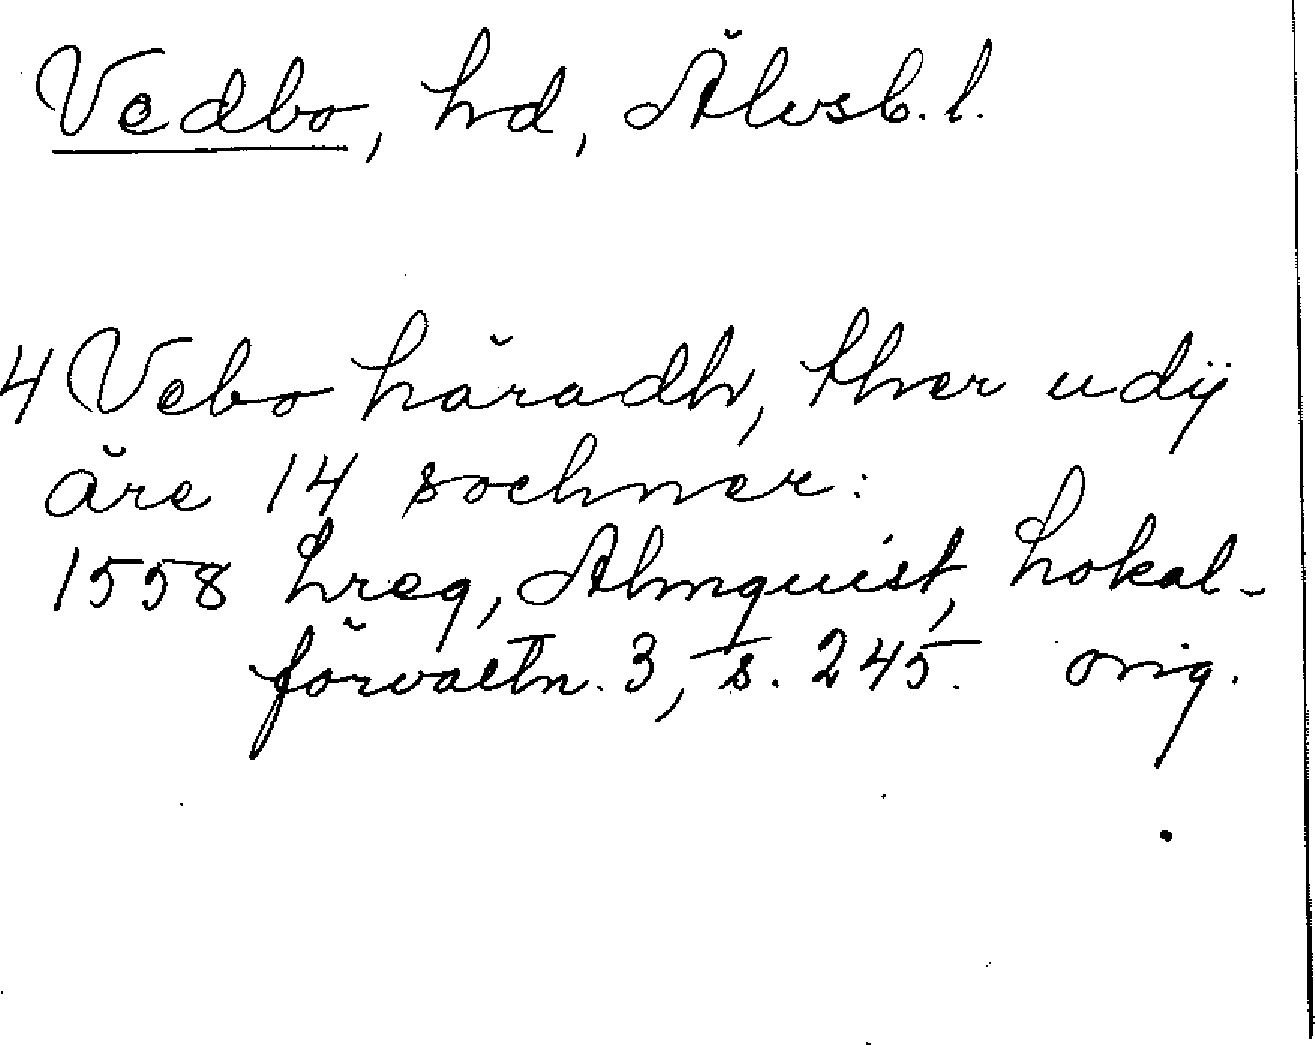 Vedbo, hd, Älvsb. l.
4 Vebo häradh, ther udij
äre 14 sochner:
1558 hreg, Almquist, Lokal-
förvaltn. 3, s. 245. orig.